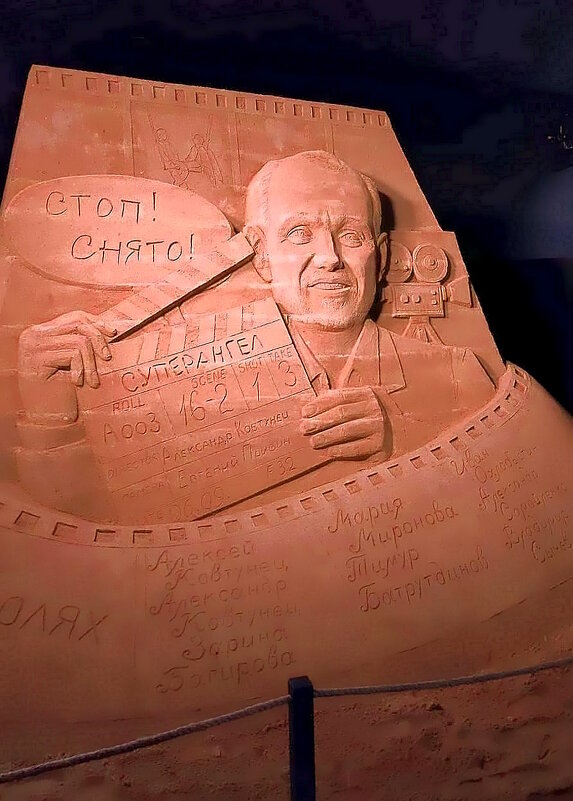 СТОП!
СНЯТО!
СУПЕРАНГЕЛ
ROLL SCENE SHOT TAKE
A003 16-2 1 3
Александр Ковтунец
Евгений
F32
ОЛЯХ
Алексей
Ковтунец,
Александр
Ковтунец,
Зарина
Багирова
Мария
Миронова
Тимур
Батрутдинов
Иван
Александр
Владимир
Сычёв